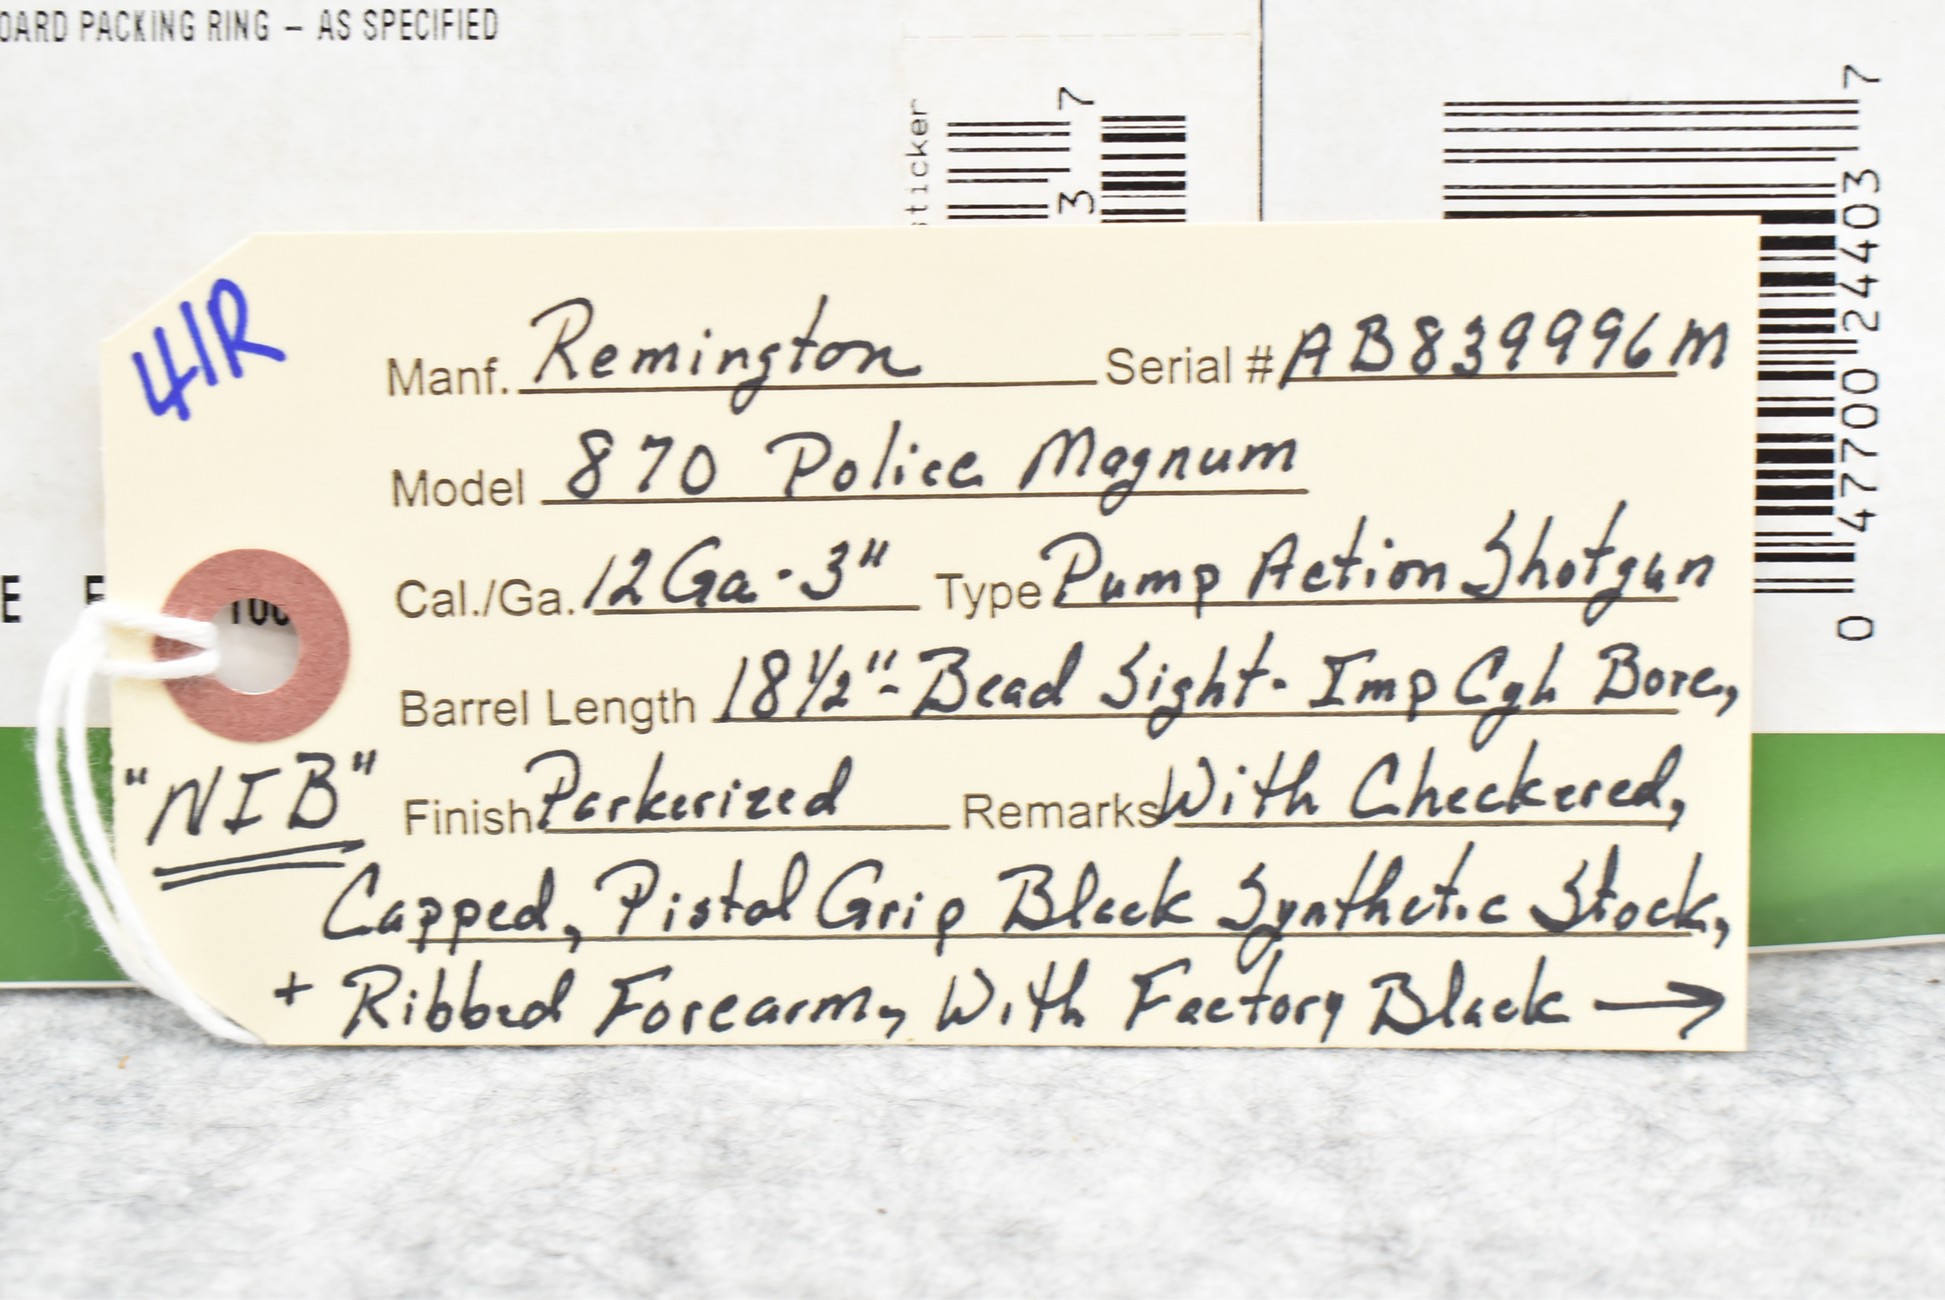 OARD PACKING RING – AS SPECIFIED
sticker
3 7
0 47700 24403 7
41R
Manf. Remington Serial # AB839996M
Model 870 Police Magnum
Cal./Ga. 12 Ga - 3" Type Pump Action Shotgun
Barrel Length 18½" - Bead Sight - Imp Cyl Bore,
"NIB" Finish Parkerized Remarks With Checkered,
Capped, Pistol Grip Black Synthetic Stock,
+ Ribbed Forearm, With Factory Black →